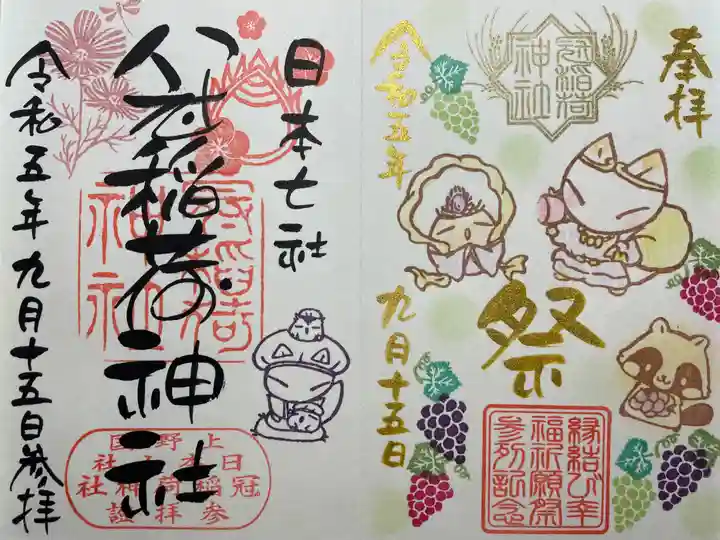 奉拝
冠稲荷
神社
令和五年
九月十五日
祭
縁結び幸
福祈願祭
参列記念
日本七社
冠稲荷神社
冠稲荷
神社
上野国
日本七社
冠稲荷神社
参拝證
令和五年九月十五日参拝